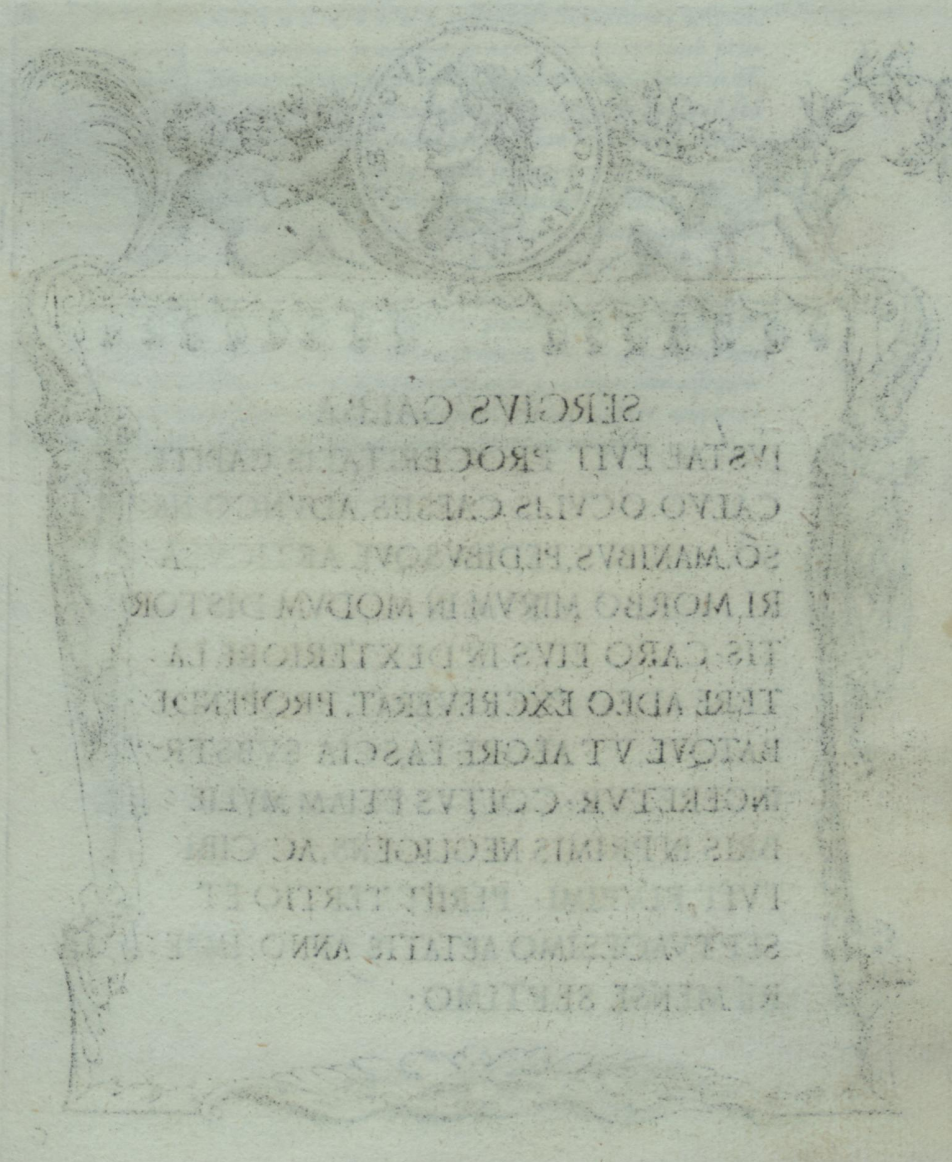 SERGIVS GALBA
IVSTAE FVIT PROCERITATIS, CAPITE
CALVO, OCVLIS CAESIIS, ADVNCO
SO, MANIBVS, PEDIBVSQVE
RI MORBO MIRVM IN MODVM DISTOR
TIS: CARO EIVS IN DEXTERIORE LA
TERE ADEO EXCREVERAT, PROPENDE
BATQVE VT AEGRE FASCIA SVBSTR
INGERETVR: COITVS ETIAM MVLIE
BRIS IN PRIMIS NEGLIGENS, AC CIBI
FVIT PERIIT TERTIO ET
SEPTVAGESIMO AETATIS ANNO, IMPE
RII MENSE SEPTIMO: